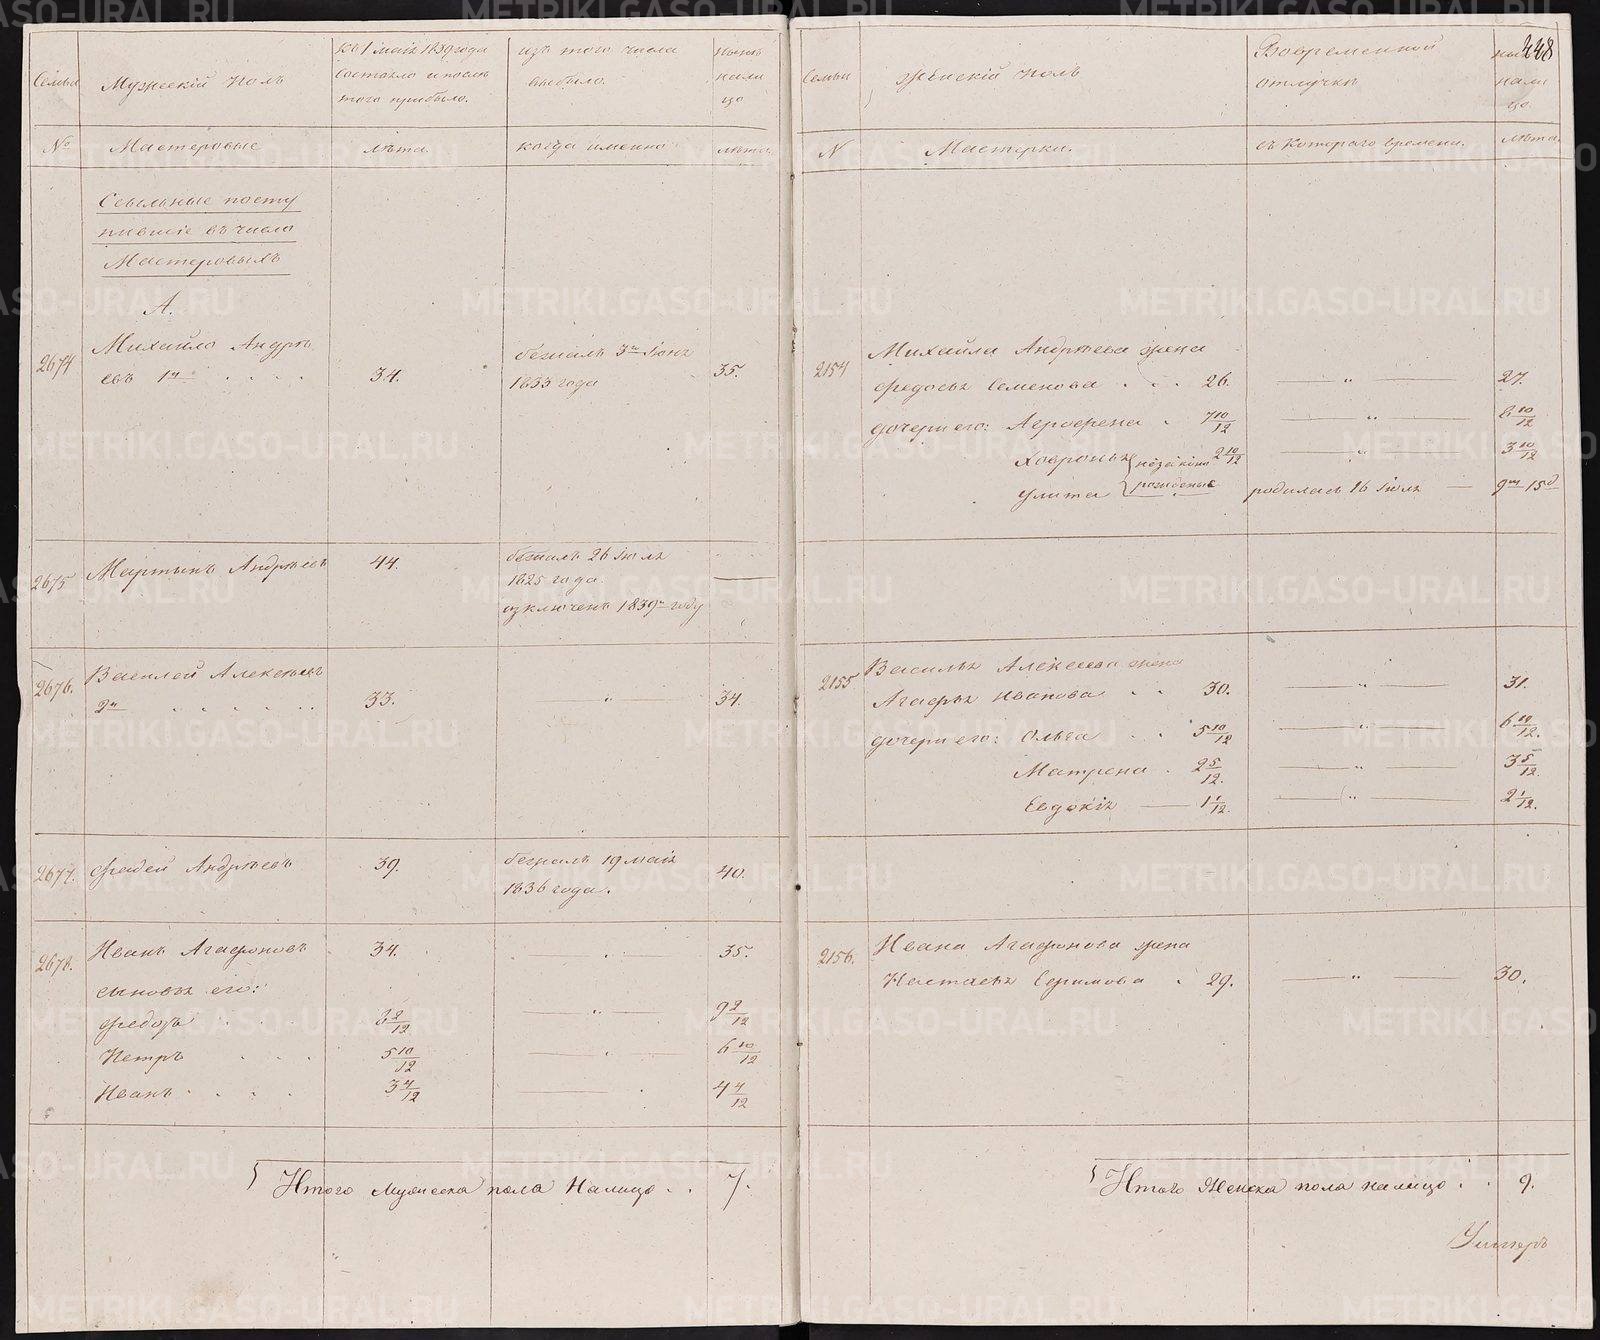 Семьи
Мужескiй Полъ
къ 1 маiя 1839 года
состояло и послѣ
того прибыло.
изъ того числа
выбыло.
нынѣ
нали
цо
№
Мастеровые
лѣта.
когда именно
лѣта.
Ссыльные посту
пившiе въ число
Мастеровыхъ
А.
2674
Михайло Андрѣ
евъ 1й . . . .
34.
бежалъ 3го Iюня
1833 года
35.
2675
Мартынъ Андрѣевъ
44.
бежалъ 26 Iюля
1825 года.
изключенъ 1839го году
2676.
Василей Алексѣевъ
2й . . . . . .
33.
34.
2677.
Фадей Андрѣевъ
39.
бежалъ 19 маiя
1836 года.
40.
2678.
Иванъ Агафоновъ
34.
35.
сыновья его:
Федоръ . . .
8 2/12
9 2/12
Петръ . . .
5 10/12
6 10/12
Иванъ . . . .
3 4/12
4 4/12
Итого Мужеска пола Налицо . .
7.
448
Семьи
Женскiй Полъ
Вовременной
отлучкѣ
нали
цо.
N
Мастерки.
съ Котораго времени.
лѣта.
2154
Михайла Андрѣева жена
Федосья Семенова . . . 26.
27.
дочери его: Агрофена . 7 10/12
8 10/12
Ховронья
незаконо
рожденые
2 10/12
3 10/12
Улита
родилась 16 Iюля
9м 15д
2155
Василья Алексеева жена
Агафья Иванова . . 30.
31.
дочери его: Ольга . . 5 10/12
6 10/12.
Матрена . 2 5/12.
3 5/12.
Евдокiя 1 1/12.
2 1/12.
2156.
Ивана Агафонова жена
Настасья Ефимова . 29.
30.
Итого Женска пола налицо . .
9.